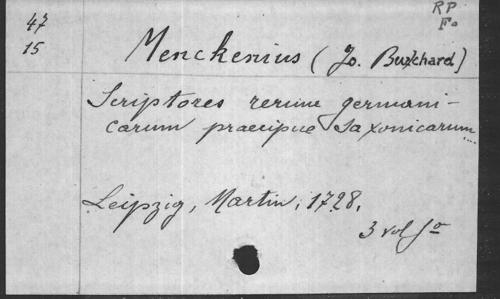 RP
Fo
47
15
Menckenius (Jo. Burchard)
Scriptores rerum germani-
carum praecipue Saxonicarum...
Leipzig, Martin, 1728.
3 vol fo